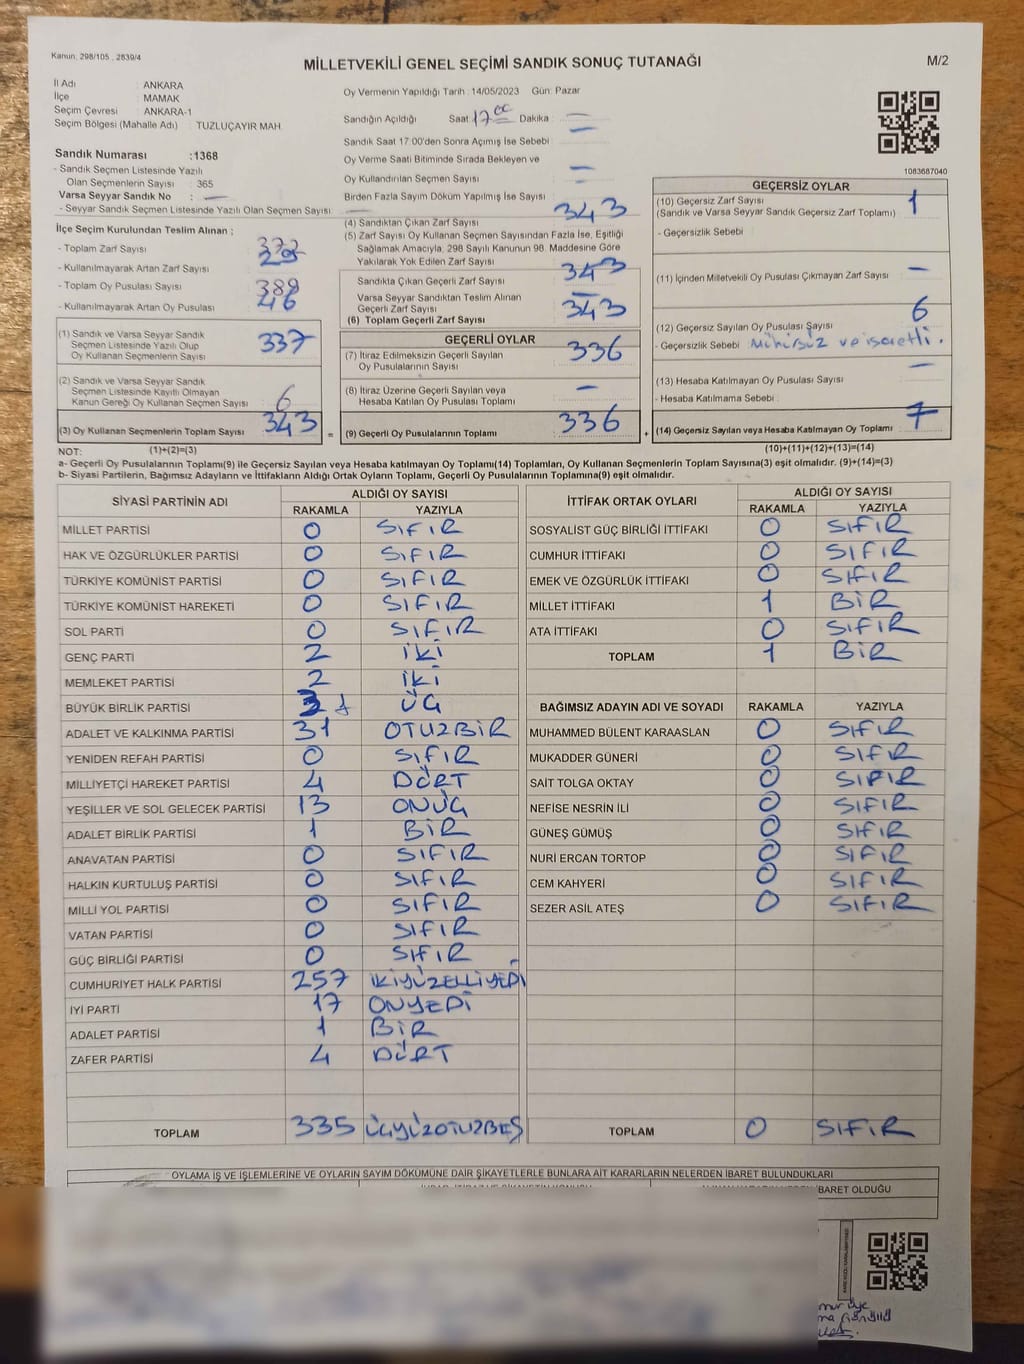 Kanun: 298/105 , 2839/4
MİLLETVEKİLİ GENEL SEÇİMİ SANDIK SONUÇ TUTANAĞI
M/2
İl Adı : ANKARA
İlçe : MAMAK
Seçim Çevresi : ANKARA-1
Seçim Bölgesi (Mahalle Adı) : TUZLUÇAYIR MAH.
Sandık Numarası :1368
- Sandık Seçmen Listesinde Yazılı
Olan Seçmenlerin Sayısı : 365
Varsa Seyyar Sandık No : —
- Seyyar Sandık Seçmen Listesinde Yazılı Olan Seçmen Sayısı: —
İlçe Seçim Kurulundan Teslim Alınan ;
- Toplam Zarf Sayısı
- Kullanılmayarak Artan Zarf Sayısı
- Toplam Oy Pusulası Sayısı 389
- Kullanılmayarak Artan Oy Pusulası 46
(1) Sandık ve Varsa Seyyar Sandık
Seçmen Listesinde Yazılı Olup
Oy Kullanan Seçmenlerin Sayısı 337
(2) Sandık ve Varsa Seyyar Sandık
Seçmen Listesinde Kayıtlı Olmayan
Kanun Gereği Oy Kullanan Seçmen Sayısı 6
(3) Oy Kullanan Seçmenlerin Toplam Sayısı 343
Oy Vermenin Yapıldığı Tarih :14/05/2023 Gün: Pazar
Sandığın Açıldığı Saat 17 00 Dakika —
Sandık Saat 17:00'den Sonra Açımış İse Sebebi : —
Oy Verme Saati Bitiminde Sırada Bekleyen ve
Oy Kullandırılan Seçmen Sayısı : —
Birden Fazla Sayım Döküm Yapılmış İse Sayısı : —
(4) Sandıktan Çıkan Zarf Sayısı 343
(5) Zarf Sayısı Oy Kullanan Seçmen Sayısından Fazla İse, Eşitliği
Sağlamak Amacıyla, 298 Sayılı Kanunun 98. Maddesine Göre
Yakılarak Yok Edilen Zarf Sayısı —
Sandıkta Çıkan Geçerli Zarf Sayısı 343
Varsa Seyyar Sandıktan Teslim Alınan
Geçerli Zarf Sayısı —
(6) Toplam Geçerli Zarf Sayısı 343
GEÇERLİ OYLAR
(7) İtiraz Edilmeksizin Geçerli Sayılan
Oy Pusulalarının Sayısı 336
(8) İtiraz Üzerine Geçerli Sayılan veya
Hesaba Katılan Oy Pusulası Toplamı —
= (9) Geçerli Oy Pusulalarının Toplamı 336
1083687040
GEÇERSİZ OYLAR
(10) Geçersiz Zarf Sayısı 1
(Sandık ve Varsa Seyyar Sandık Geçersiz Zarf Toplamı)
- Geçersizlik Sebebi :
(11) İçinden Milletvekili Oy Pusulası Çıkmayan Zarf Sayısı —
(12) Geçersiz Sayılan Oy Pusulası Sayısı 6
- Geçersizlik Sebebi : Mühürsüz ve işaretli.
(13) Hesaba Katılmayan Oy Pusulası Sayısı —
- Hesaba Katılmama Sebebi :
+ (14) Geçersiz Sayılan veya Hesaba Katılmayan Oy Toplamı 7
NOT: (1)+(2)=(3) (10)+(11)+(12)+(13)=(14)
a- Geçerli Oy Pusulalarının Toplamı(9) ile Geçersiz Sayılan veya Hesaba katılmayan Oy Toplamı(14) Toplamları, Oy Kullanan Seçmenlerin Toplam Sayısına(3) eşit olmalıdır. (9)+(14)=(3)
b- Siyasi Partilerin, Bağımsız Adayların ve İttifakların Aldığı Ortak Oyların Toplamı, Geçerli Oy Pusulalarının Toplamına(9) eşit olmalıdır.
SİYASİ PARTİNİN ADI ALDIĞI OY SAYISI
RAKAMLA YAZIYLA
MİLLET PARTİSİ 0 SIFIR
HAK VE ÖZGÜRLÜKLER PARTİSİ 0 SIFIR
TÜRKİYE KOMÜNİST PARTİSİ 0 SIFIR
TÜRKİYE KOMÜNİST HAREKETİ 0 SIFIR
SOL PARTİ 0 SIFIR
GENÇ PARTİ 2 İKİ
MEMLEKET PARTİSİ 2 İKİ
BÜYÜK BİRLİK PARTİSİ 3 ÜÇ
ADALET VE KALKINMA PARTİSİ 31 OTUZBİR
YENİDEN REFAH PARTİSİ 0 SIFIR
MİLLİYETÇİ HAREKET PARTİSİ 4 DÖRT
YEŞİLLER VE SOL GELECEK PARTİSİ 13 ONÜÇ
ADALET BİRLİK PARTİSİ 1 BİR
ANAVATAN PARTİSİ 0 SIFIR
HALKIN KURTULUŞ PARTİSİ 0 SIFIR
MİLLİ YOL PARTİSİ 0 SIFIR
VATAN PARTİSİ 0 SIFIR
GÜÇ BİRLİĞİ PARTİSİ 0 SIFIR
CUMHURİYET HALK PARTİSİ 257 İKİYÜZELLİYEDİ
İYİ PARTİ 17 ONYEDİ
ADALET PARTİSİ 1 BİR
ZAFER PARTİSİ 4 DÖRT
TOPLAM 335 ÜÇYÜZOTUZBEŞ
İTTİFAK ORTAK OYLARI ALDIĞI OY SAYISI
RAKAMLA YAZIYLA
SOSYALİST GÜÇ BİRLİĞİ İTTİFAKI 0 SIFIR
CUMHUR İTTİFAKI 0 SIFIR
EMEK VE ÖZGÜRLÜK İTTİFAKI 0 SIFIR
MİLLET İTTİFAKI 1 BİR
ATA İTTİFAKI 0 SIFIR
TOPLAM 1 BİR
BAĞIMSIZ ADAYIN ADI VE SOYADI RAKAMLA YAZIYLA
MUHAMMED BÜLENT KARAASLAN 0 SIFIR
MUKADDER GÜNERİ 0 SIFIR
SAİT TOLGA OKTAY 0 SIFIR
NEFİSE NESRİN İLİ 0 SIFIR
GÜNEŞ GÜMÜŞ 0 SIFIR
NURİ ERCAN TORTOP 0 SIFIR
CEM KAHYERİ 0 SIFIR
SEZER ASİL ATEŞ 0 SIFIR
TOPLAM 0 SIFIR
OYLAMA İŞ VE İŞLEMLERİNE VE OYLARIN SAYIM DÖKÜMÜNE DAİR ŞİKAYETLERLE BUNLARA AİT KARARLARIN NELERDEN İBARET BULUNDUKLARI
BARET OLDUĞU